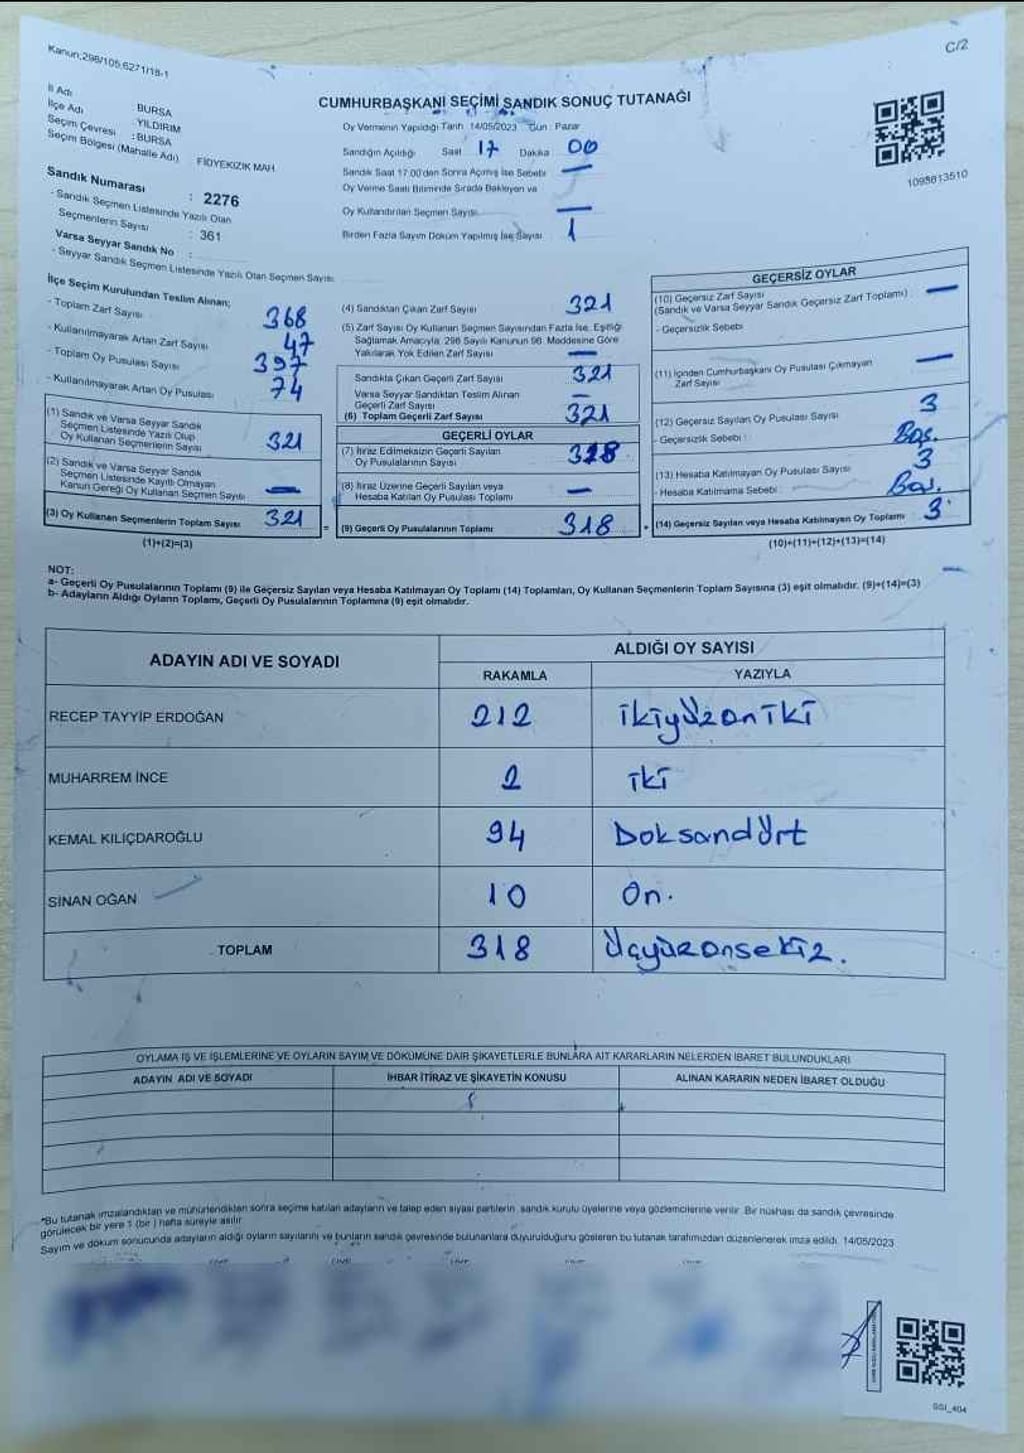 Kanun:298/105,6271/18-1
C/2
İl Adı : BURSA
İlçe Adı : YILDIRIM
Seçim Çevresi : BURSA
Seçim Bölgesi (Mahalle Adı) FİDYEKIZIK MAH
Sandık Numarası : 2276
- Sandık Seçmen Listesinde Yazılı Olan
Seçmenlerin Sayısı : 361
Varsa Seyyar Sandık No :
- Seyyar Sandık Seçmen Listesinde Yazılı Olan Seçmen Sayısı
CUMHURBAŞKANI SEÇİMİ SANDIK SONUÇ TUTANAĞI
Oy Vermenin Yapıldığı Tarih 14/05/2023 Gün : Pazar
Sandığın Açıldığı Saat 17 Dakika 00
Sandık Saat 17:00'dan Sonra Açılmış İse Sebebi —
Oy Verme Saati Bitiminde Sırada Bekleyen ve
Oy Kullandırılan Seçmen Sayısı —
Birden Fazla Sayım Döküm Yapılmış İse Sayısı 1
1098613510
İlçe Seçim Kurulundan Teslim Alınan;
- Toplam Zarf Sayısı 368
- Kullanılmayarak Artan Zarf Sayısı 47
- Toplam Oy Pusulası Sayısı 397
- Kullanılmayarak Artan Oy Pusulası 74
(1) Sandık ve Varsa Seyyar Sandık
Seçmen Listesinde Yazılı Olup
Oy Kullanan Seçmenlerin Sayısı 321
(2) Sandık ve Varsa Seyyar Sandık
Seçmen Listesinde Kayıtlı Olmayan
Kanun Gereği Oy Kullanan Seçmen Sayısı —
(3) Oy Kullanan Seçmenlerin Toplam Sayısı 321 =
(1)+(2)=(3)
(4) Sandıktan Çıkan Zarf Sayısı 321
(5) Zarf Sayısı Oy Kullanan Seçmen Sayısından Fazla İse, Eşitliği
Sağlamak Amacıyla, 298 Sayılı Kanunun 98. Maddesine Göre
Yakılarak Yok Edilen Zarf Sayısı —
Sandıkta Çıkan Geçerli Zarf Sayısı 321
Varsa Seyyar Sandıktan Teslim Alınan
Geçerli Zarf Sayısı —
(6) Toplam Geçerli Zarf Sayısı 321
GEÇERLİ OYLAR
(7) İtiraz Edilmeksizin Geçerli Sayılan
Oy Pusulalarının Sayısı 318
(8) İtiraz Üzerine Geçerli Sayılan veya
Hesaba Katılan Oy Pusulası Toplamı —
(9) Geçerli Oy Pusulalarının Toplamı 318 +
GEÇERSİZ OYLAR
(10) Geçersiz Zarf Sayısı
(Sandık ve Varsa Seyyar Sandık Geçersiz Zarf Toplamı) —
- Geçersizlik Sebebi
(11) İçinden Cumhurbaşkanı Oy Pusulası Çıkmayan
Zarf Sayısı —
(12) Geçersiz Sayılan Oy Pusulası Sayısı 3
- Geçersizlik Sebebi : Boş.
(13) Hesaba Katılmayan Oy Pusulası Sayısı 3
- Hesaba Katılmama Sebebi Boş.
(14) Geçersiz Sayılan veya Hesaba Katılmayan Oy Toplamı 3
(10)+(11)+(12)+(13)=(14)
NOT:
a- Geçerli Oy Pusulalarının Toplamı (9) ile Geçersiz Sayılan veya Hesaba Katılmayan Oy Toplamı (14) Toplamları, Oy Kullanan Seçmenlerin Toplam Sayısına (3) eşit olmalıdır. (9)+(14)=(3)
b- Adayların Aldığı Oyların Toplamı, Geçerli Oy Pusulalarının Toplamına (9) eşit olmalıdır.
ADAYIN ADI VE SOYADI
ALDIĞI OY SAYISI
RAKAMLA YAZIYLA
RECEP TAYYİP ERDOĞAN 212 ikiyüzoniki
MUHARREM İNCE 2 iki
KEMAL KILIÇDAROĞLU 94 Doksandört
SİNAN OĞAN 10 On.
TOPLAM 318 Üçyüzonsekiz.
OYLAMA İŞ VE İŞLEMLERİNE VE OYLARIN SAYIM VE DÖKÜMÜNE DAİR ŞİKAYETLERLE BUNLARA AİT KARARLARIN NELERDEN İBARET BULUNDUKLARI
ADAYIN ADI VE SOYADI İHBAR İTİRAZ VE ŞİKAYETİN KONUSU ALINAN KARARIN NEDEN İBARET OLDUĞU
*Bu tutanak imzalandıktan ve mühürlendikten sonra seçime katılan adayların ve talep eden siyasi partilerin sandık kurulu üyelerine veya gözlemcilerine verilir. Bir nüshası da sandık çevresinde
görülecek bir yere 1 (bir) hafta süreyle asılır.
Sayım ve döküm sonucunda adayların aldığı oyların sayılarını ve bunların sandık çevresinde bulunanlara duyurulduğunu gösteren bu tutanak tarafımızdan düzenlenerek imza edildi. 14/05/2023
GGI_404